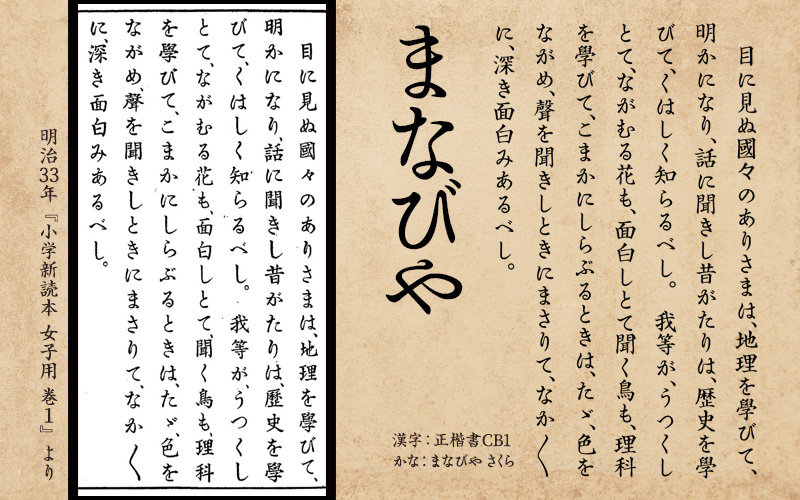 目に見ぬ國々のありさまは、地理を學びて、
明かになり、話に聞きし昔がたりは、歷史を學
びて、くはしく知らるべし。　我等が、うつくし
とて、ながむる花も、面白しとて聞く鳥も、理科
を學びて、こまかにしらぶるときは、たゞ、色を
ながめ、聲を聞きしときにまさりて、なか〱
に、深き面白みあるべし。
まなびや
漢字：正楷書CB1
かな：まなびや さくら
目に見ぬ國々のありさまは、地理を學びて、
明かになり、話に聞きし昔がたりは、歷史を學
びて、くはしく知らるべし。　我等が、うつくし
とて、ながむる花も、面白しとて、聞く鳥も、理科
を學びて、こまかにしらぶるときは、たゞ、色を
ながめ、聲を聞きしときにまさりて、なか〱
に、深き面白みあるべし。
明治33年『小学新読本 女子用 巻1』より